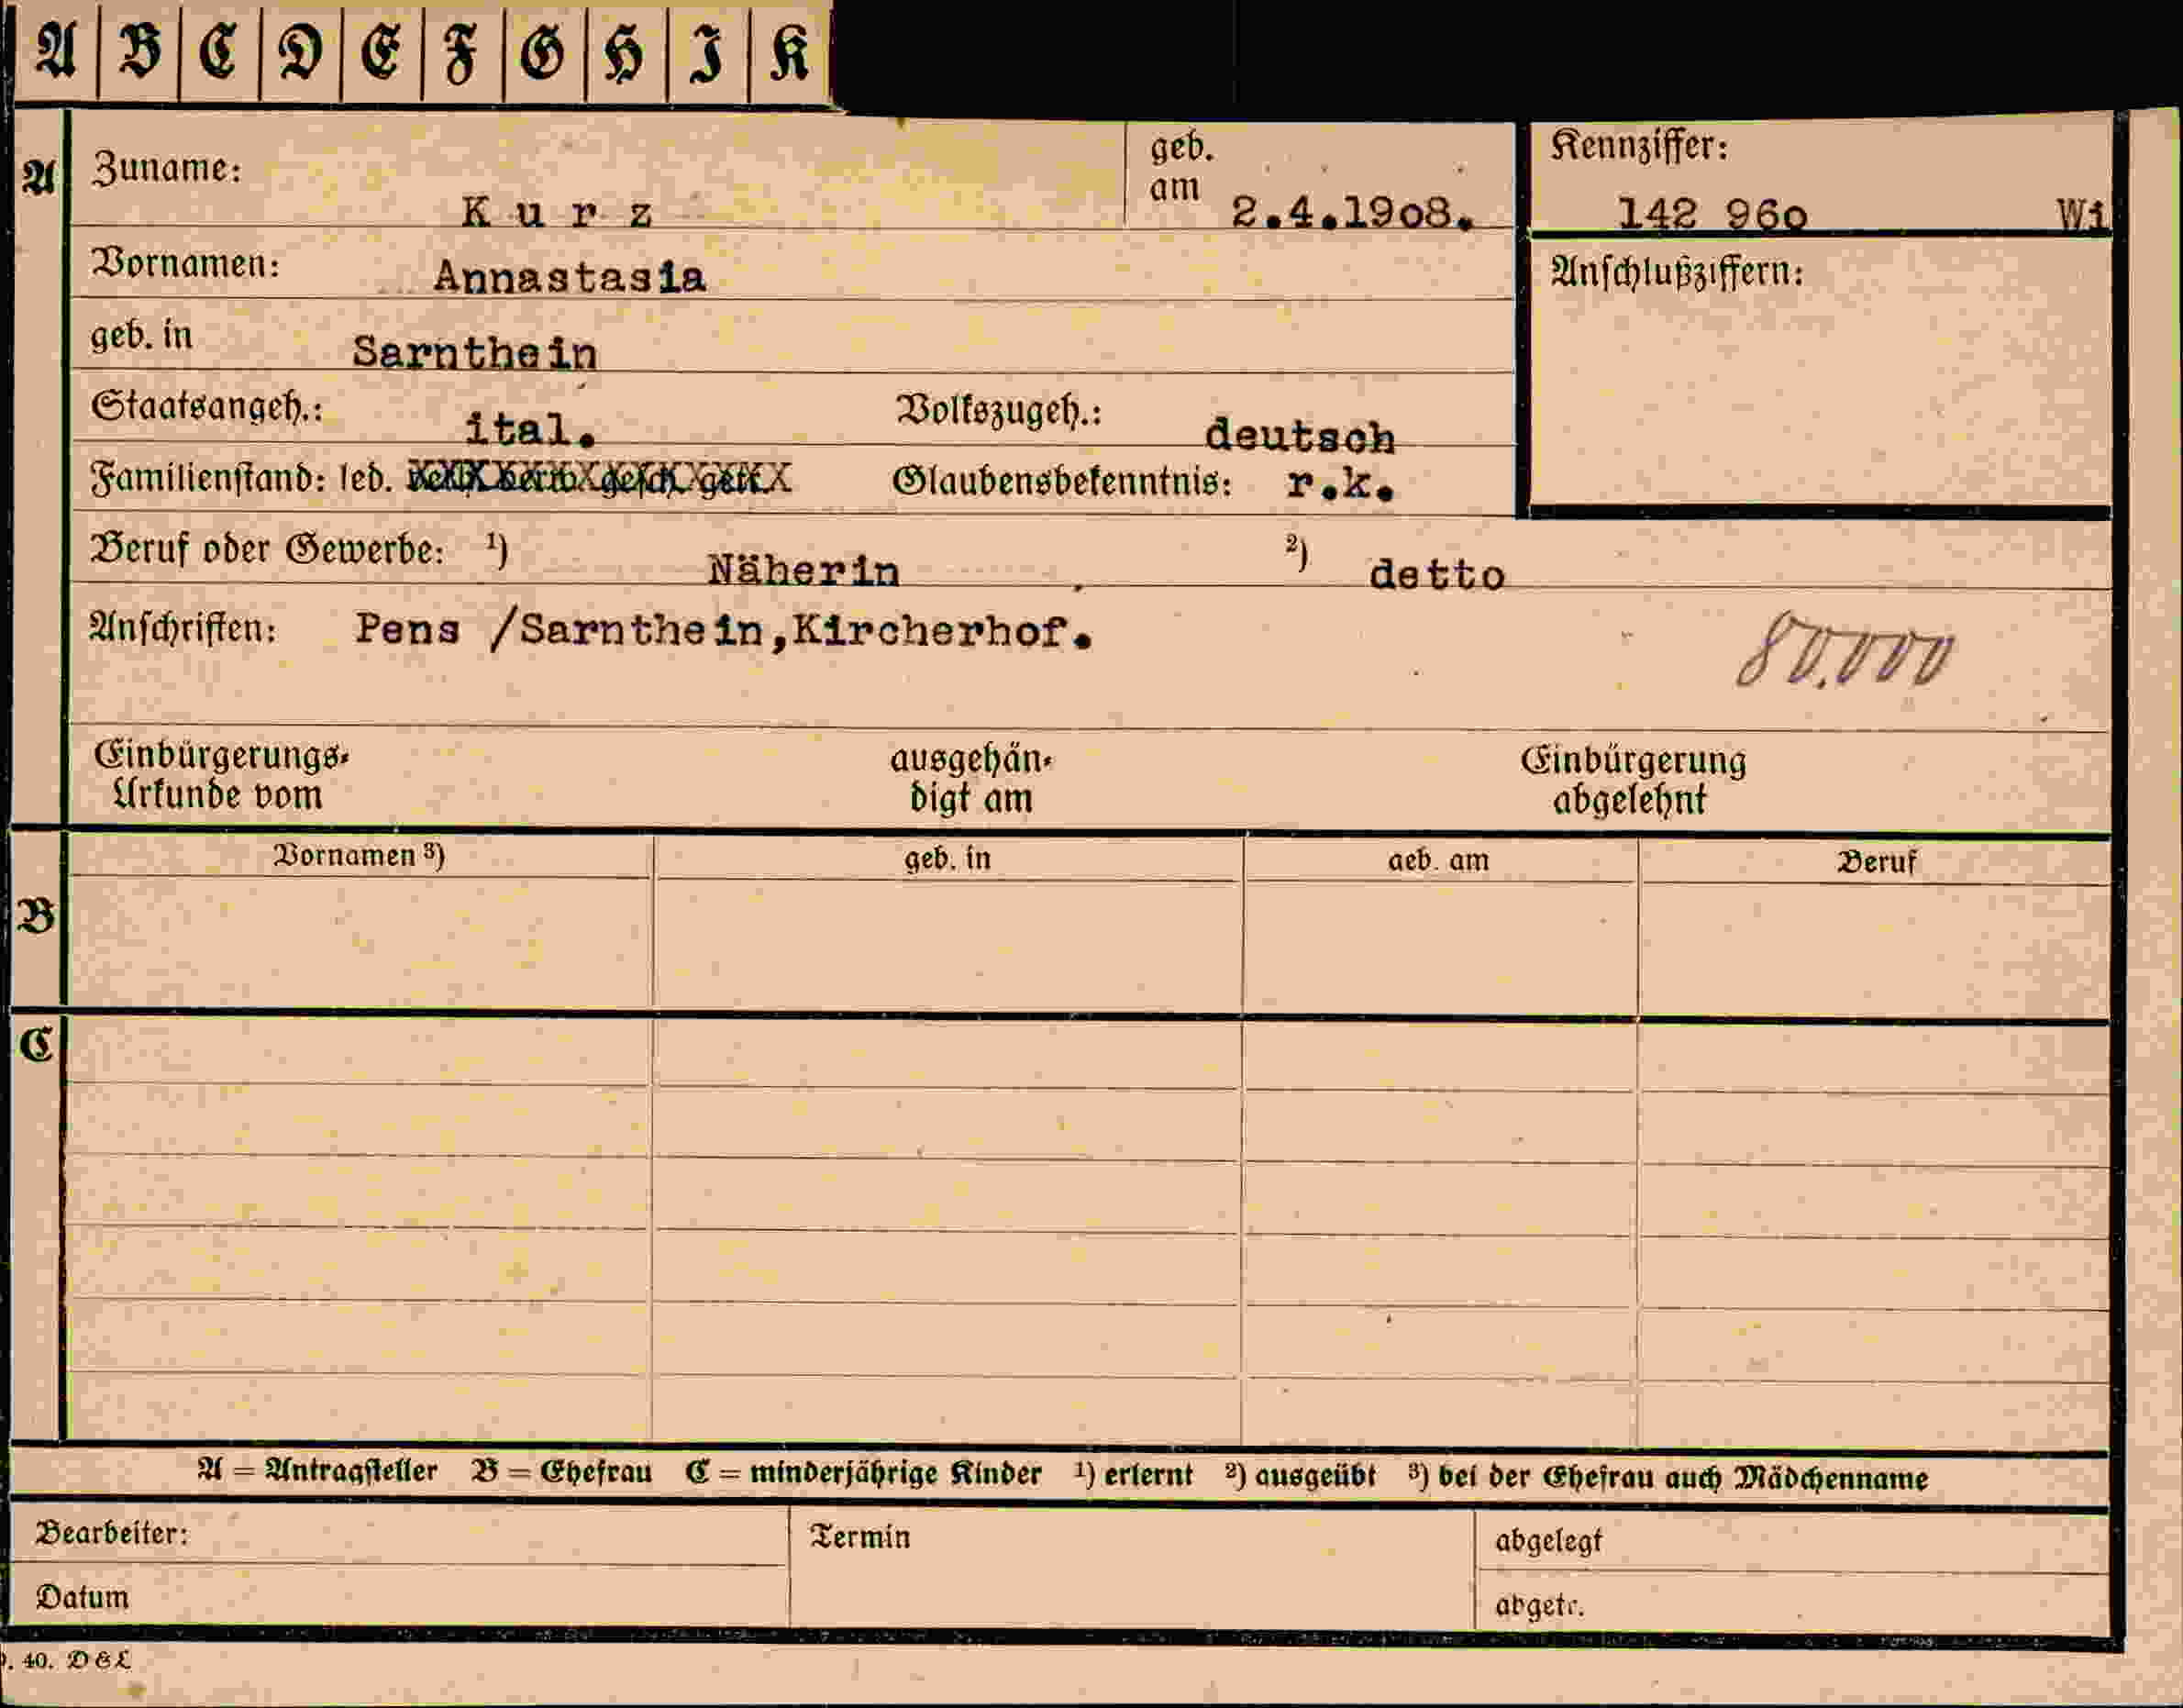 A B C D E F G H I K
A Zuname: K u r z geb. am 2.4.19o8. Kennziffer: 142 96o Wi
Vornamen: Annastasia Anschlußziffern:
geb. in Sarnthein
Staatsangeh.: ital. Volkszugeh.: deutsch
Familienstand: led. verh. verw. gesch. getr. Glaubensbekenntnis: r.k.
Beruf oder Gewerbe: ¹) Näherin ²) detto
Anschriften: Pens /Sarnthein,Kircherhof. 80.000
Einbürgerungs- ausgehän- Einbürgerung
Urkunde vom digt am abgelehnt
Vornamen ³) geb. in geb. am Beruf
B
C
A = Antragsteller B = Ehefrau C = minderjährige Kinder ¹) erlernt ²) ausgeübt ³) bei der Ehefrau auch Mädchenname
Bearbeiter: Termin abgelegt
Datum abgetr.
. 40. D & L